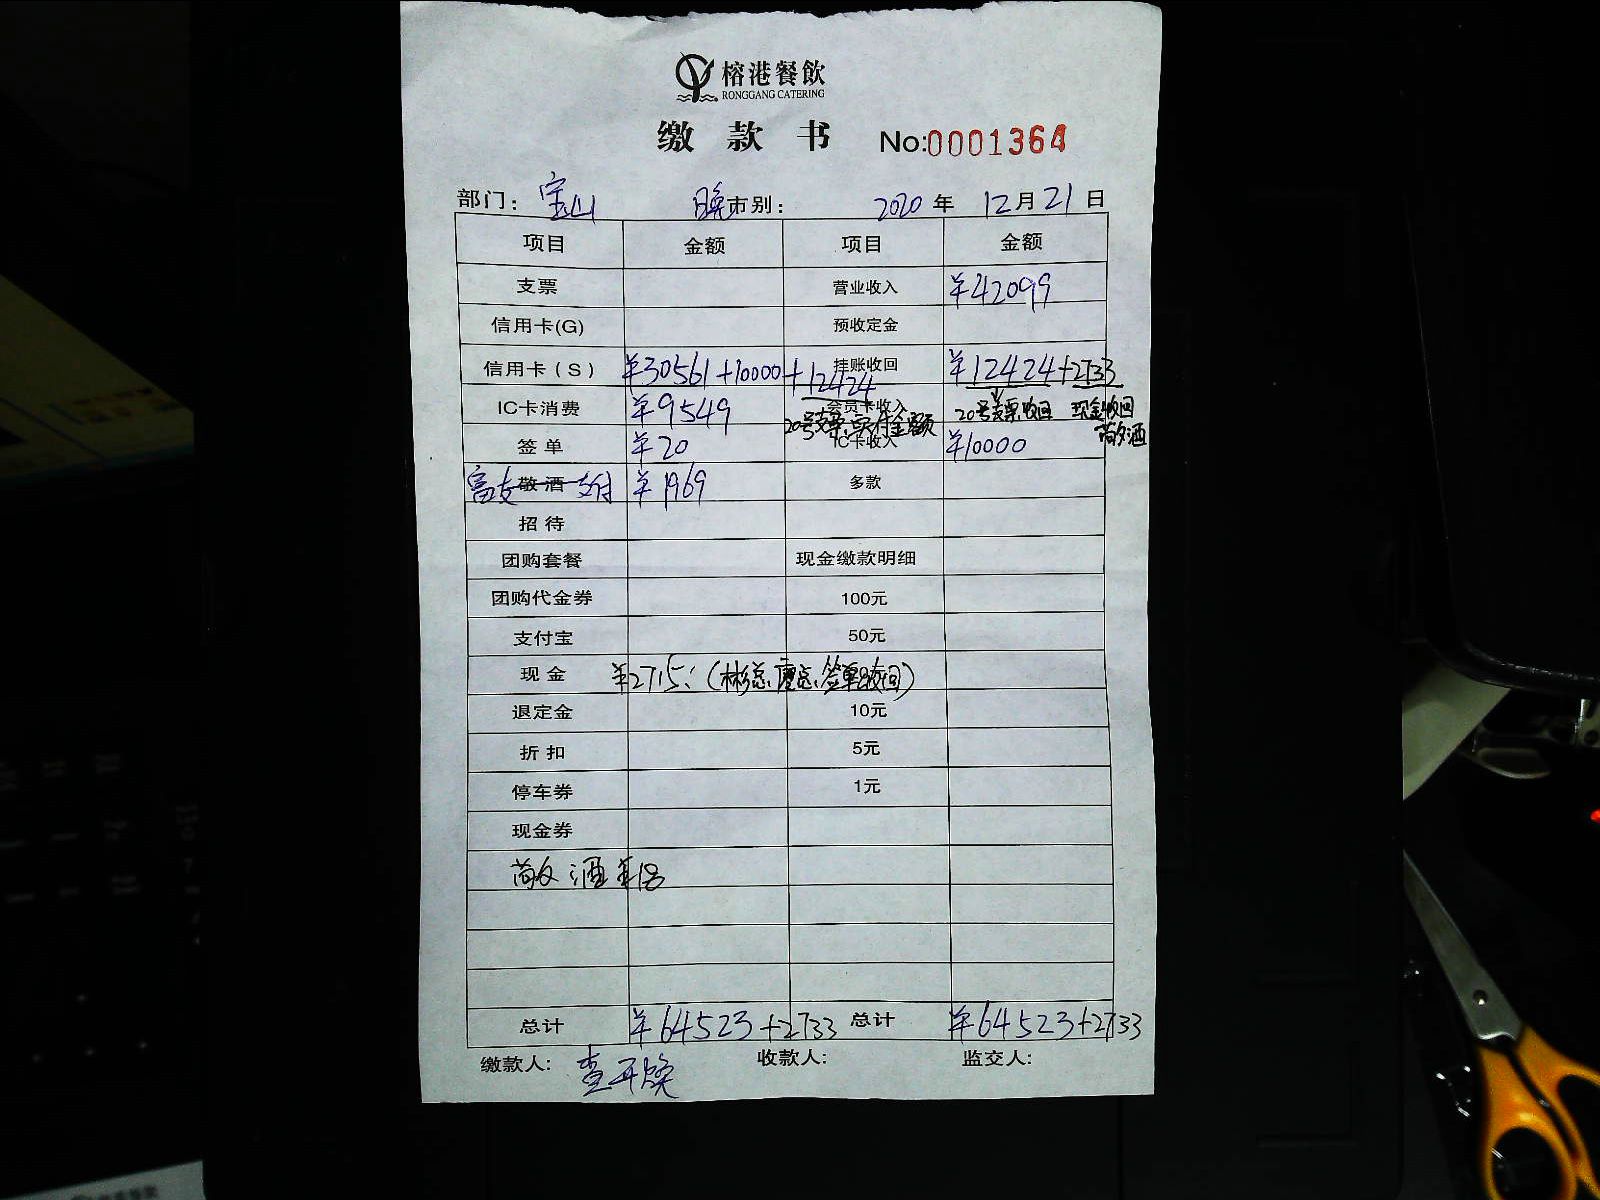 榕港餐飲
RONGGANG CATERING
缴款书 No:0001364
部门: 宝山 晚市别: 2020年12月21日
项目 金额 项目 金额
支票 营业收入 ¥42099
信用卡(G) 预收定金
信用卡(S) ¥30561+10000+12424 挂账收回 ¥12424+2733
IC卡消费 ¥9549 会员卡收入 20号支票收回 现金收回
20号支票,实付金额 敬酒
签单 ¥20 IC卡收入 ¥10000
富友敬酒支付 ¥1969 多款
招待
团购套餐 现金缴款明细
团购代金券 100元
支付宝 50元
现金 ¥2715:(彬总、唐总、签单收回)
退定金 10元
折扣 5元
停车券 1元
现金券
敬酒 ¥18
总计 ¥64523+2733 总计 ¥64523+2733
缴款人: 收款人: 监交人: